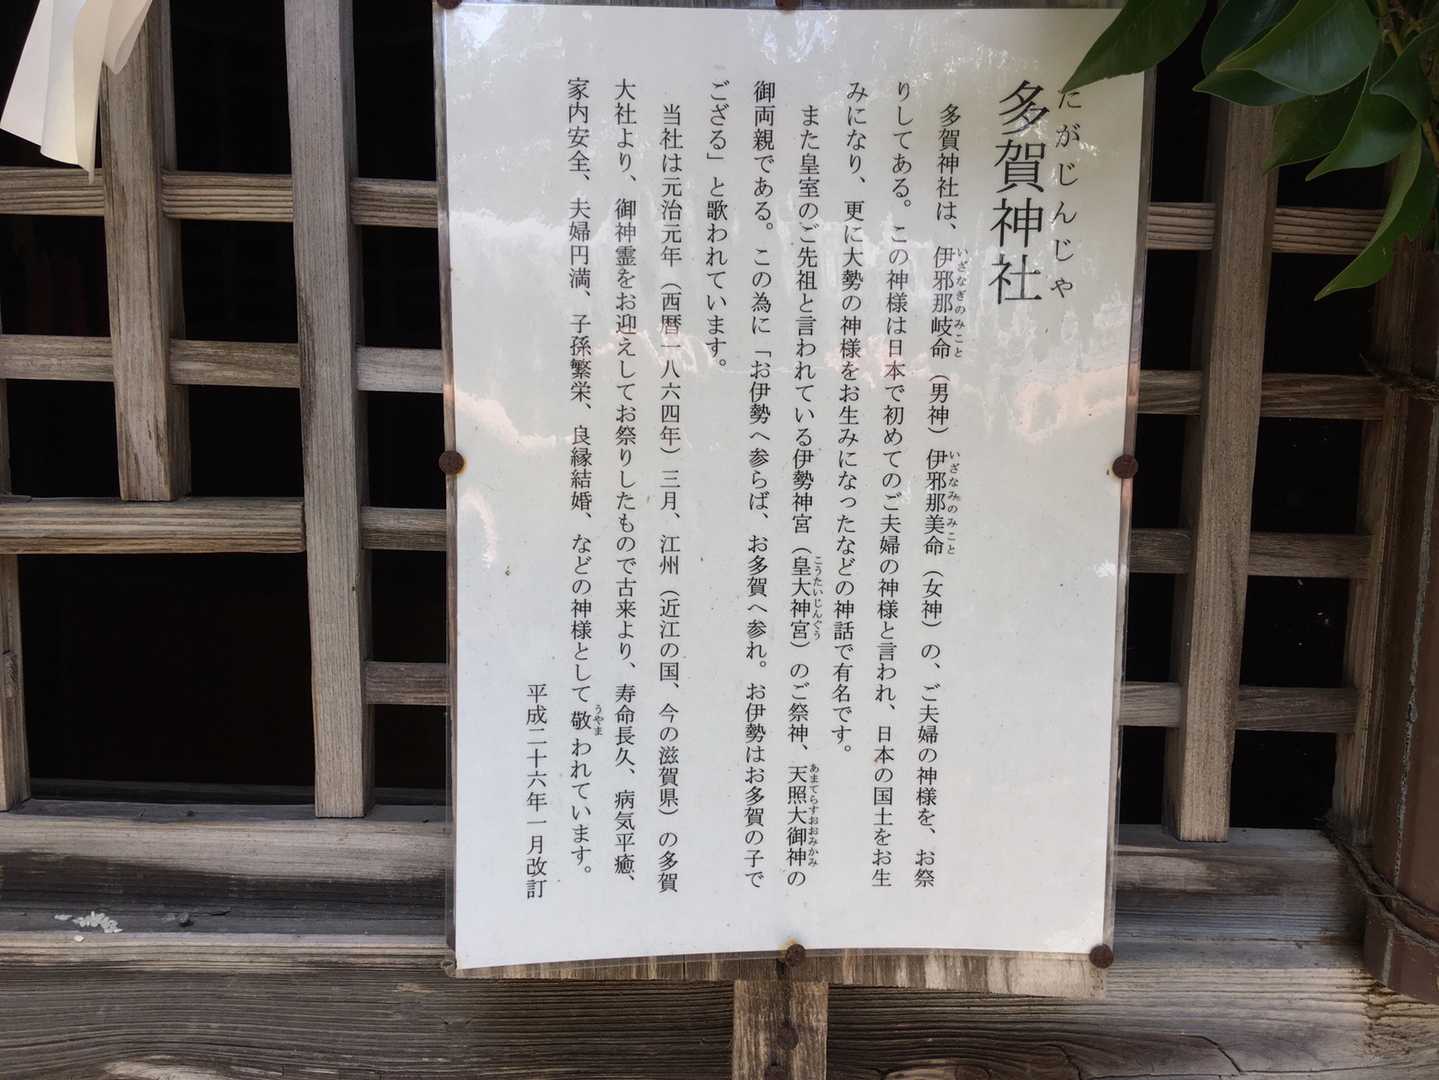 たがじんじゃ
多賀神社
多賀神社は、伊邪那岐命（男神）伊邪那美命（女神）の、ご夫婦の神様を、お祭
いざなぎのみこと
いざなみのみこと
りしてある。この神様は日本で初めてのご夫婦の神様と言われ、日本の国土をお生
みになり、更に大勢の神様をお生みになったなどの神話で有名です。
また皇室のご先祖と言われている伊勢神宮（皇大神宮）のご祭神、天照大御神の
こうたいじんぐう
あまてらすおおみかみ
御両親である。この為に「お伊勢へ参らば、お多賀へ参れ。お伊勢はお多賀の子で
ござる」と歌われています。
当社は元治元年（西暦一八六四年）三月、江州（近江の国、今の滋賀県）の多賀
大社より、御神霊をお迎えしてお祭りしたもので古来より、寿命長久、病気平癒、
家内安全、夫婦円満、子孫繁栄、良縁結婚、などの神様として敬われています。
うやま
平成二十六年一月改訂